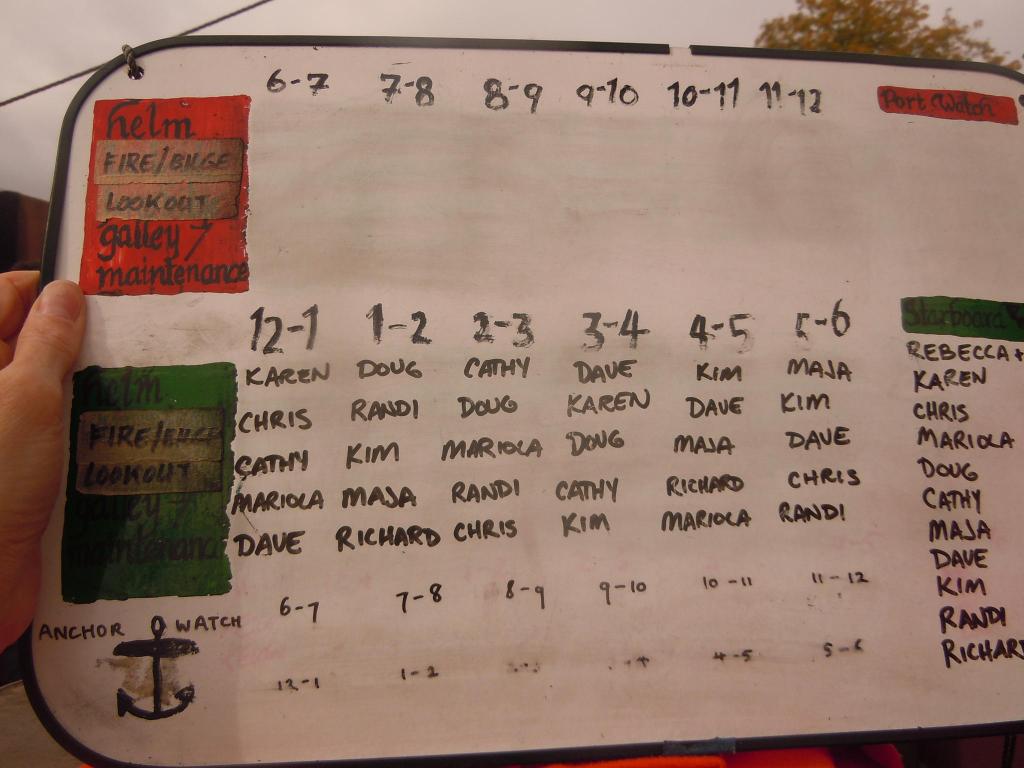 6-7 7-8 8-9 9-10 10-11 11-12
Port Watch
helm
FIRE/BILGE
LOOKOUT
galley
maintenance
12-1 1-2 2-3 3-4 4-5 5-6
Starboard
helm
FIRE/BILGE
LOOKOUT
galley
maintenance
KAREN DOUG CATHY DAVE KIM MAJA
CHRIS RANDI DOUG KAREN DAVE KIM
CATHY KIM MARIOLA DOUG MAJA DAVE
MARIOLA MAJA RANDI CATHY RICHARD CHRIS
DAVE RICHARD CHRIS KIM MARIOLA RANDI
REBECCA +
KAREN
CHRIS
MARIOLA
DOUG
CATHY
MAJA
DAVE
KIM
RANDI
RICHARD
ANCHOR WATCH
6-7 7-8 8-9 9-10 10-11 11-12
12-1 1-2 4-5 5-6